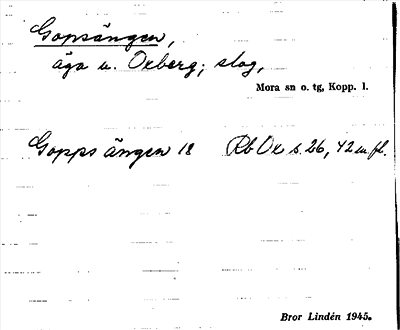 Gopsängen,
äga u. Oxberg; slog,
Mora sn o. tg, Kopp. l.
Gopps ängen 18 Rb Ox s. 26, 42 m. fl.
Bror Lindén 1945.